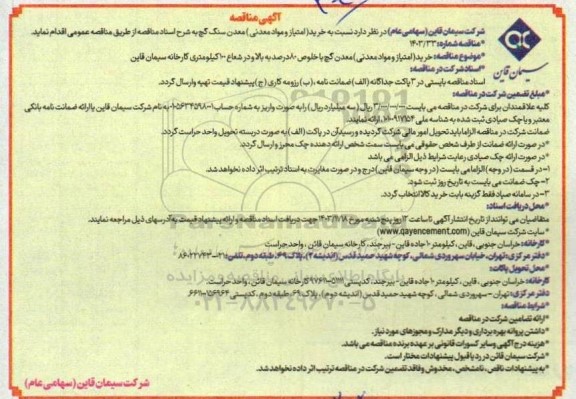 آگهی مناقصه
شرکت سیمان قاین (سهامی عام) در نظر دارد نسبت به خرید (امتیاز و مواد معدنی) معدن سنگ گچ به شرح اسناد مناقصه از طریق مناقصه عمومی اقدام نماید.
*مناقصه شماره: ۱۴۰۳/۳۳
*موضوع مناقصه: خرید (امتیاز و مواد معدنی) معدن گچ با خلوص ۸۰ درصد به بالا و در شعاع ۱۰۰ کیلومتری کارخانه سیمان قاین
*اسناد شرکت در مناقصه:
سیمان قاین
اسناد مناقصه بایستی در ۳ پاکت جداگانه (الف) ضمانت نامه، (ب) رزومه کاری (ج) پیشنهاد قیمت تهیه و ارسال گردد.
*مبلغ تضمین شرکت در مناقصه:
کلیه علاقمندان برای شرکت در مناقصه می بایست ۳/۰۰۰/۰۰۰/۰۰۰ ریال (سه میلیارد ریال) را به صورت واریز به شماره حساب به نام شرکت سیمان قاین یا ارائه ضمانت نامه بانکی
معتبر و یا چک صیادی ثبت شده به شناسه ملی ارائه نمایند.
ضمانت شرکت در مناقصه الزاما باید تحویل امور مالی شرکت گردیده و رسید آن در پاکت (الف) به صورت دربسته تحویل واحد حراست گردد.
*در صورت ارائه ضمانت از طرف شخص حقوقی می بایست سمت شخص ارائه دهنده چک محرز و ارسال گردد.
*در صورت ارائه چک صیادی رعایت شرایط ذیل الزامی می باشد
۱- در قسمت (در وجه) الزاما می بایست (در وجه سیمان قاین) درج و در صورت مغایرت به اسناد ترتیب اثر داده نخواهد شد.
۲- چک ضمانت می بایست به تاریخ روز ثبت شود.
۳- در سامانه صیاد فقط گزینه بابت خرید کالا انتخاب گردد.
*محل دریافت اسناد:
متقاضیان می توانند از تاریخ انتشار آگهی تا ساعت ۱۲ روز پنج شنبه مورخ ۱۴۰۳/۱۱/۱۸ جهت دریافت اسناد مناقصه و ارائه پیشنهاد قیمت به آدرسهای ذیل مراجعه نمایند.
*سایت شرکت سیمان قاین (www.qayencement.com)
*کارخانه: خراسان جنوبی، قاین، کیلومتر ۱۰ جاده قاین - بیرجند، کارخانه سیمان قائن، واحد حراست
*دفتر مرکزی: تهران، خیابان سهروردی شمالی، کوچه شهید حمید قدس (اندیشه ۲)، پلاک ۶۹، طبقه دوم، تلفن:
*محل تحویل پاکات:
کارخانه: خراسان جنوبی، قاین، کیلومتر ۱۰ جاده قاین - بیرجند، کدپستی کارخانه سیمان قائن، واحد حراست.
دفتر مرکزی: تهران - سهروردی شمالی، کوچه شهید حمید قدس (اندیشه دوم)، پلاک ۶۹، طبقه دوم، کدپستی
*شرایط مناقصه:
*ارائه تضامین شرکت در مناقصه
*داشتن پروانه بهره برداری و دیگر مدارک و مجوزهای مورد نیاز.
*هزینه درج آگهی و سایر کسورات قانونی بر عهده برنده مناقصه می باشد.
*شرکت سیمان قائن در رد یا قبول پیشنهادات مختار است.
*به پیشنهادات ناقص، نامشخص، مخدوش و فاقد تضمین شرکت در مناقصه ترتیب اثر داده نخواهد شد.
شرکت سیمان قاین (سهامی عام)